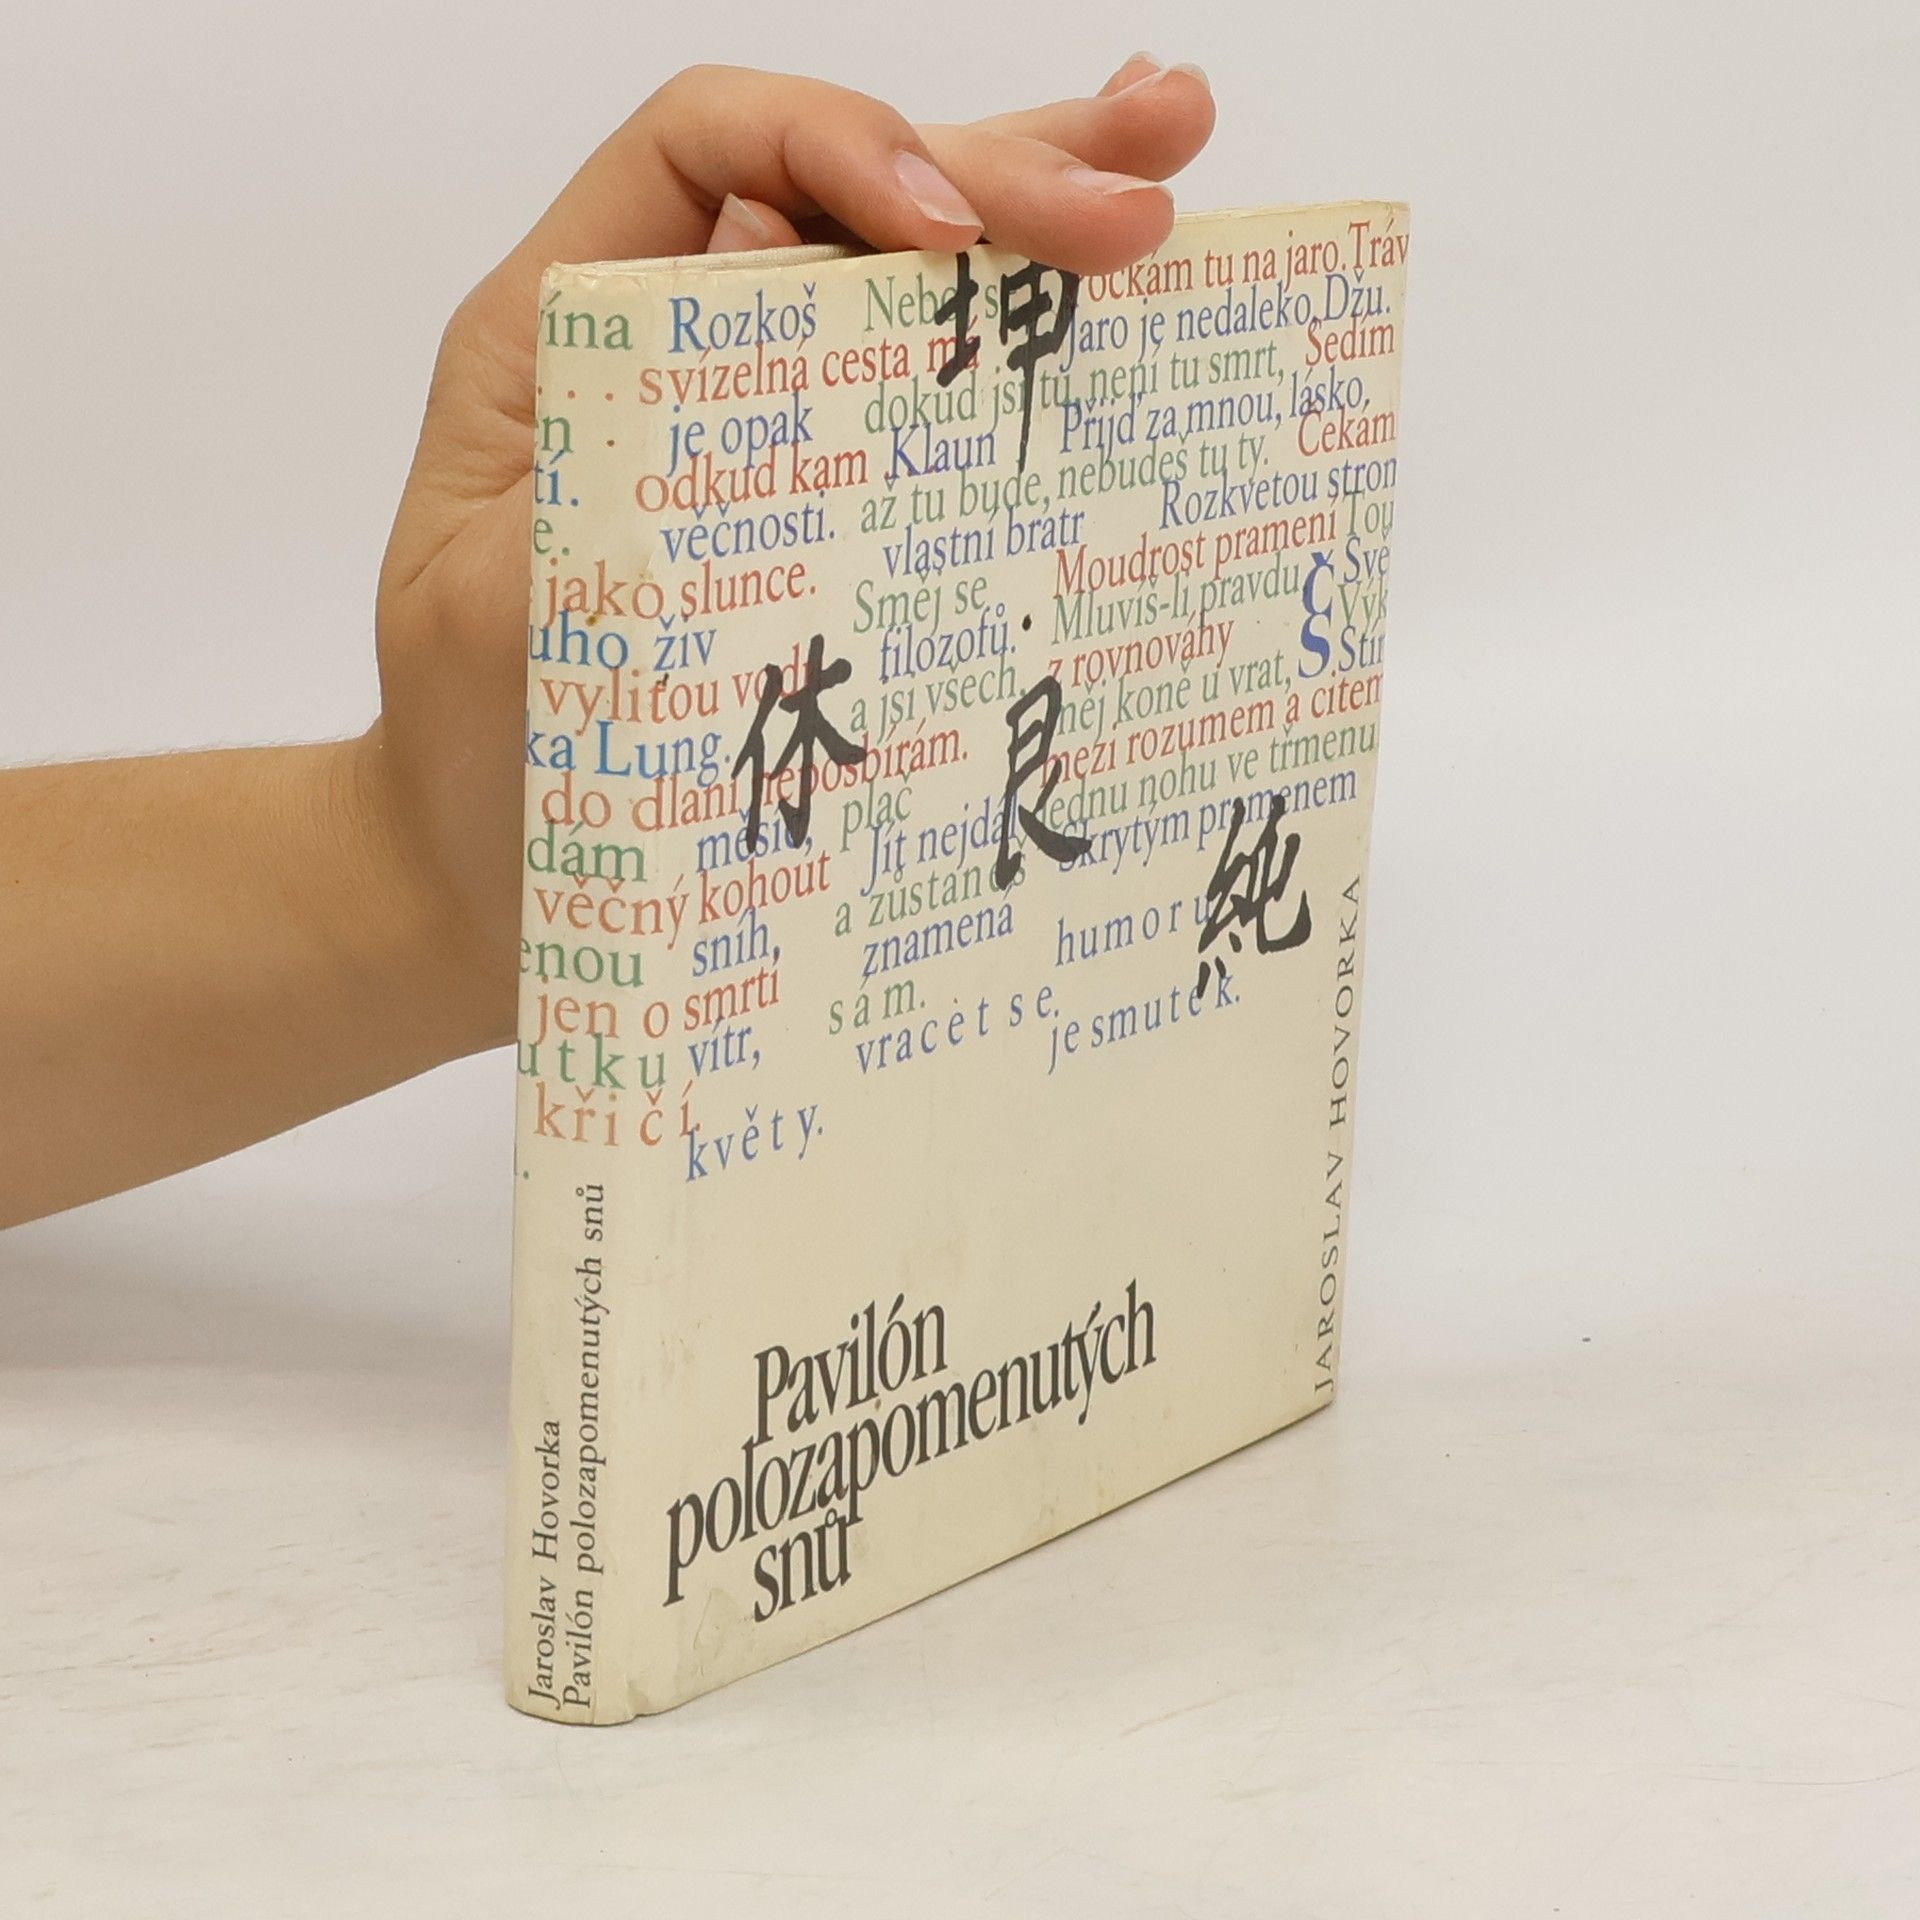 vína Rozkoš
. . . svízelná cesta má
je opak
odkud kam
věčnosti.
jako slunce.
živ
vylitou
Lung.
do dlaní neposbírám.
měsíc,
věčný kohout
sníh,
jen o smrti
vítr,
křičí.
květy.
dokud jsi tu, není tu smrt,
Klaun
až tu bude, nebudeš tu ty.
vlastní bratr
Směj se
filozofů.
a jsi všech.
pláč
Jít nejdál
a zůstaneš
znamená
sám.
vracet se.
tu na jaro. Tráv
Jaro je nedaleko, Džu.
Sedím
Přijď za mnou, lásko,
Čekám
Rozkvetou stron
Moudrost pramení
Mluvíš-li pravdu,
z rovnováhy
měj koně u vrat,
mezi rozumem a citem
jednu nohu ve třmenu
Skrytým pramenem
humoru
je smutek.
坤
休
艮
純
JAROSLAV HOVORKA
Pavilón
polozapomenutých
snů
Jaroslav Hovorka
Pavilón polozapomenutých snů